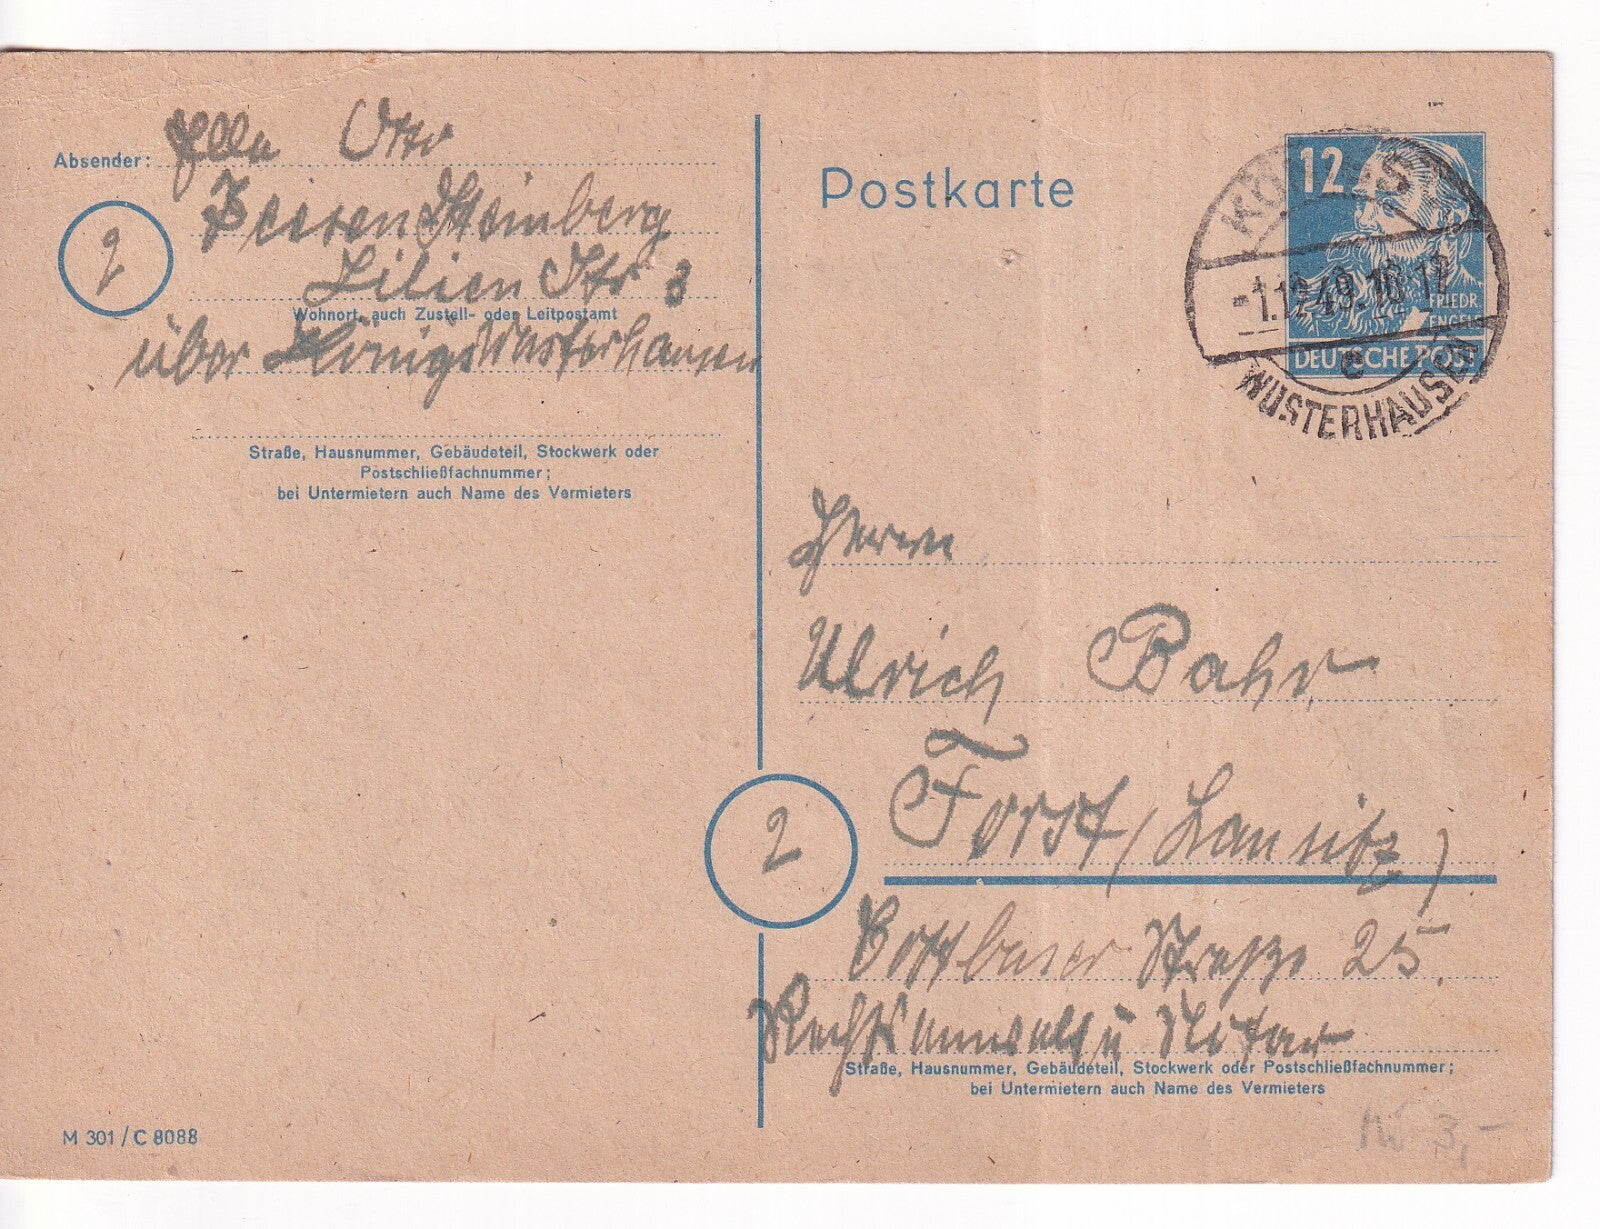 Absender: Ella Otto
Zeesen Steinberg
2
Lilien Str 3
Wohnort, auch Zustell- oder Leitpostamt
über Königs Wusterhausen
Straße, Hausnummer, Gebäudeteil, Stockwerk oder
Postschließfachnummer;
bei Untermietern auch Name des Vermieters
M 301 / C 8088
Postkarte
12
FRIEDR.
ENGELS
DEUTSCHE POST
KÖNIGS
-1.12.49.16-17
c
WUSTERHAUSEN
Herrn
Ulrich Bahr
Forst (Lausitz)
2
Cottbuser Straße 25.
Rechtsanwalt u Notar
Straße, Hausnummer, Gebäudeteil, Stockwerk oder Postschließfachnummer;
bei Untermietern auch Name des Vermieters
3,-